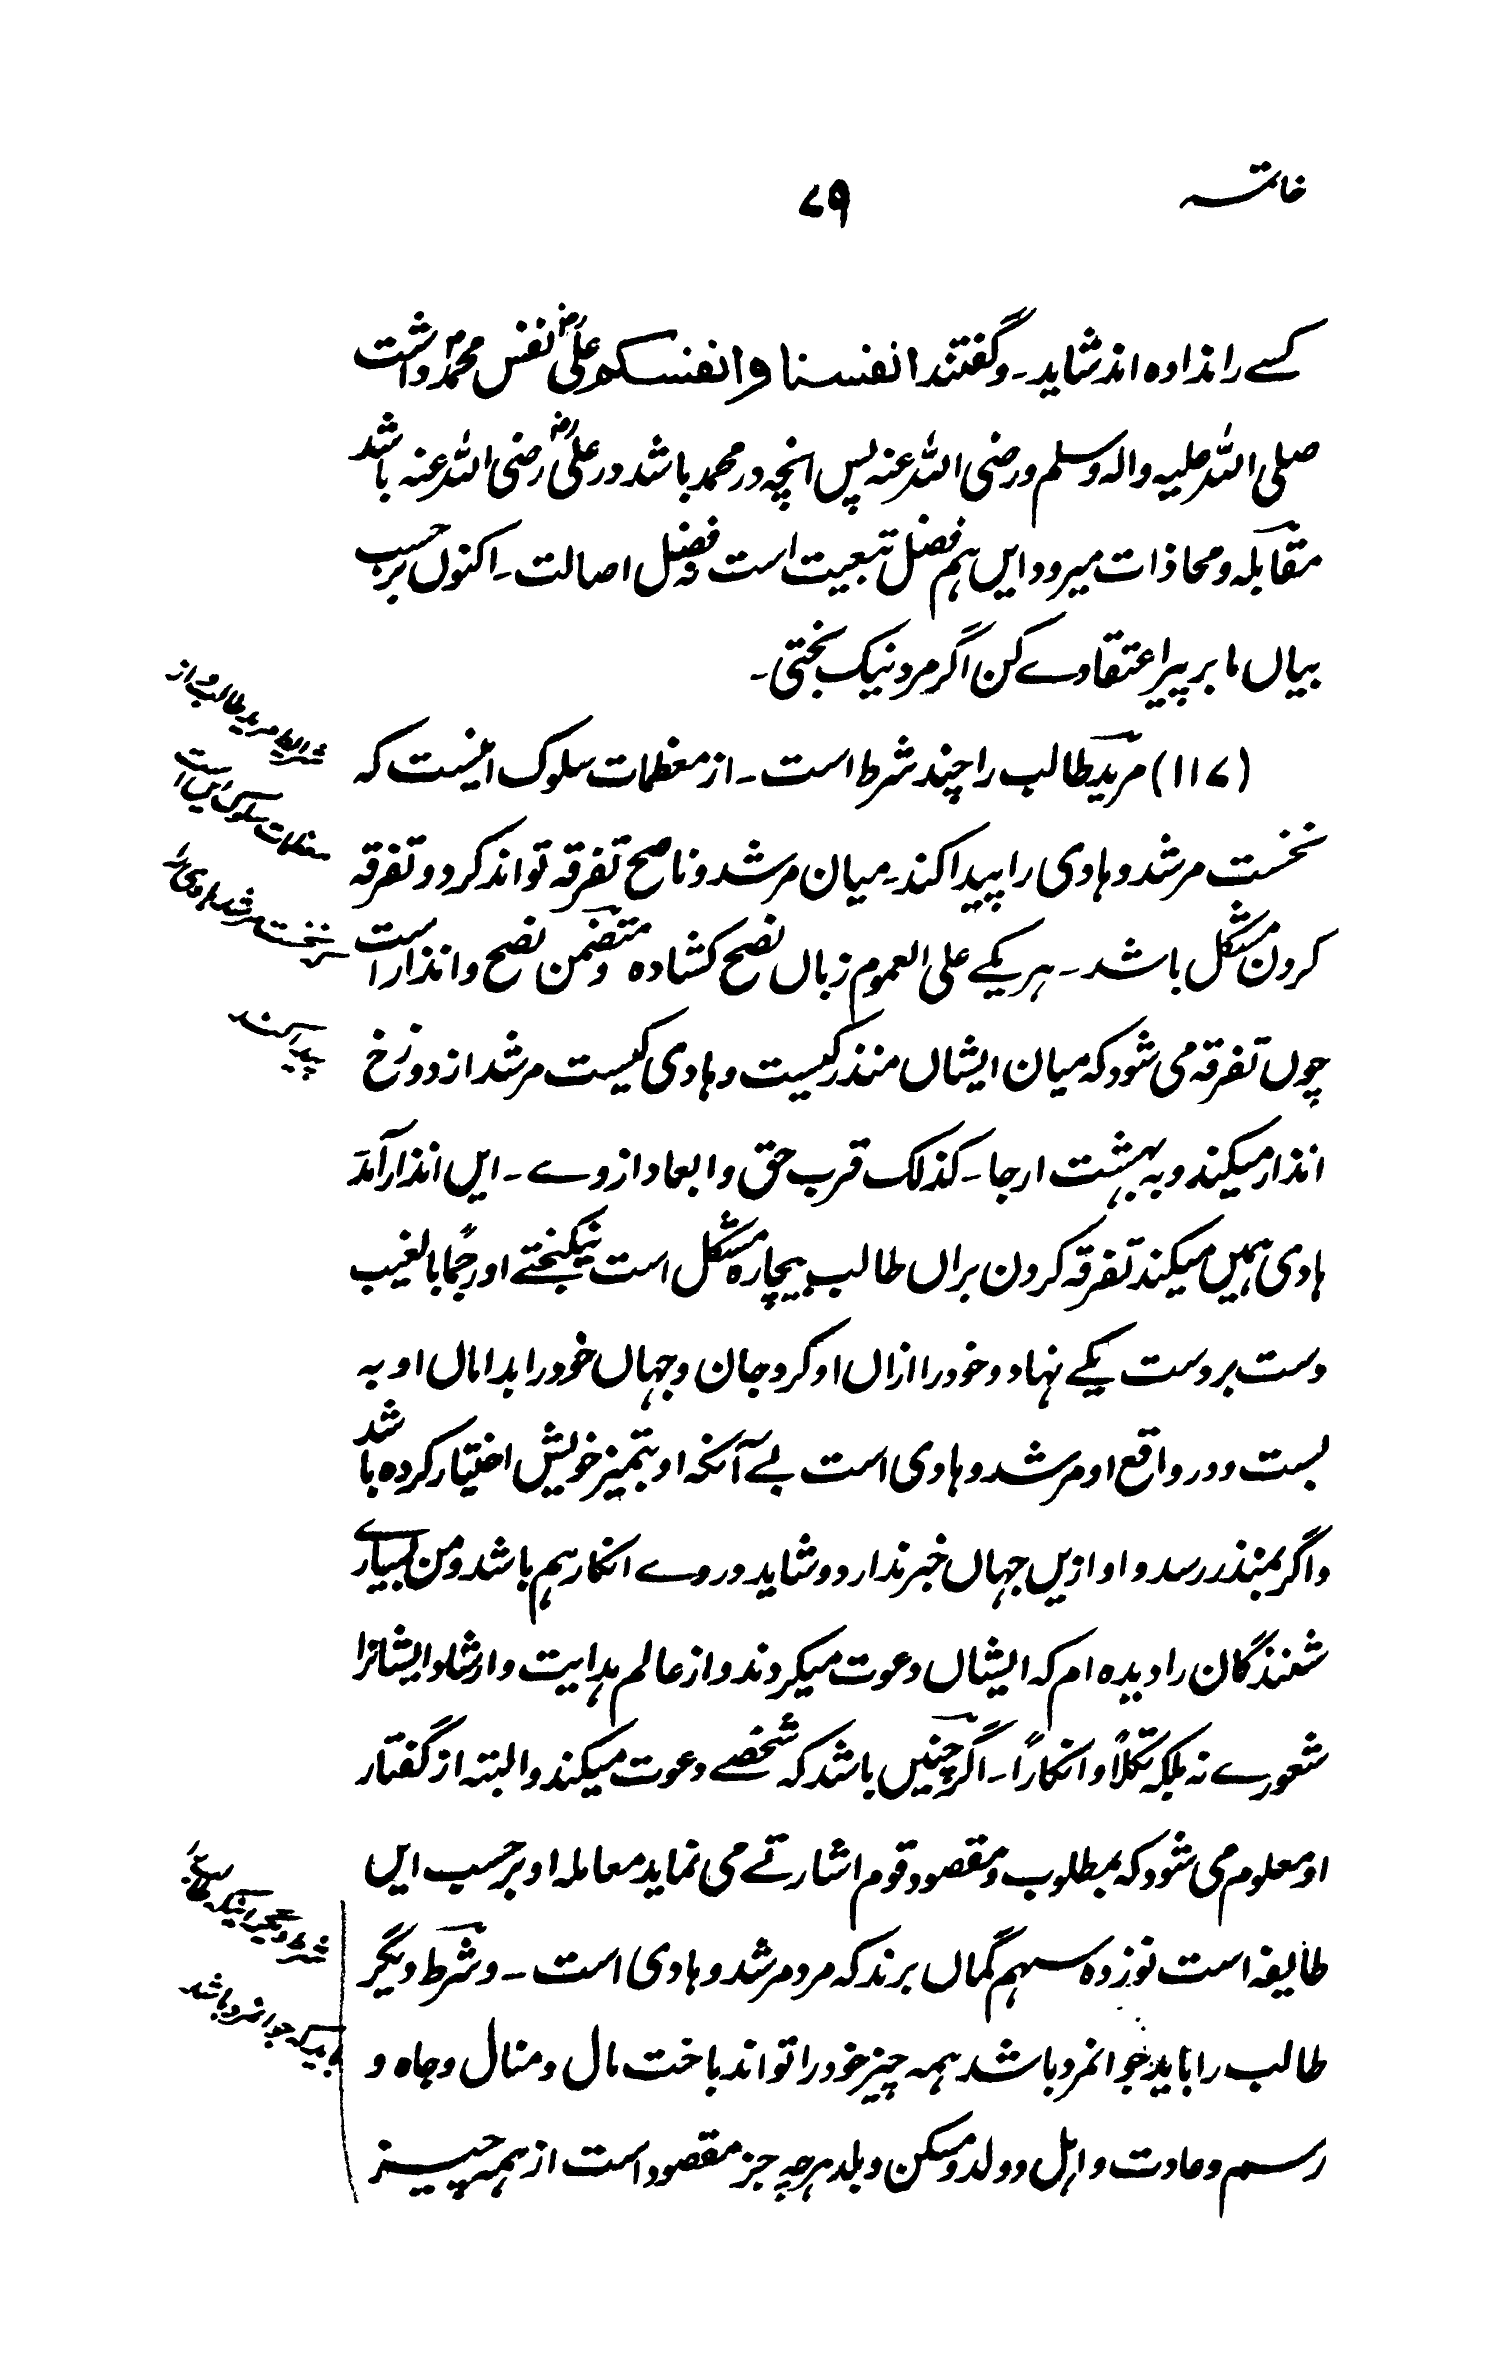 خاتمہ
۷۹
کسے را نداده اند شاید۔ و گفتند انفسنا وانفسکم علیؓ نفس محمدؐ داشت
صلی اللہ علیہ واله وسلم ورضی اللہ عنہ پس انچہ در محمد باشد در علیؓ رضی اللہ عنہ باشد
مقابلہ و محاذات میرود ایں ہم فضل تبعیت است نہ فضل اصالت۔ اکنوں بر حسب
بیاں ما بر پیر اعتقادے کن اگر مرد نیک بختی۔
(۱۱۷) مرید طالب را چند شرط است۔ از معظمات سلوک اینست کہ
نخست مرشد و ہادی را پیدا کند۔ میان مرشد و ناصح تفرقہ تواند کرد و تفرقہ
کردن مشکل باشد۔ ہر یکے علی العموم زباں نصح کشادہ و متضمن نصح و انذار است
چوں تفرقہ می شود کہ میان ایشاں منذر کیست و ہادی کیست مرشد از دوزخ
انذار میکند و بہ بہشت ارجا۔ کذلک قرب حق و ابعاد از وے۔ ایں انذار آمد
ہادی ہمیں میکند تفرقہ کردن براں طالب بیچارہ مشکل است نیکبختے او رجمًا بالغیب
دست بر دست یکے نہاد و خود را ازاں او کرد و جان و جہاں خود را بدامال او بہ
بست و در واقع او مرشد و ہادی است بے آنکہ او بتمیز خویش اختیار کردہ باشد
و اگر بمنذر رسد و او ازیں جہاں خبر ندارد و شاید در وے انکار ہم باشد و من بسیارے
شنندگان را دیدہ ام کہ ایشاں دعوت میکردند و از عالم ہدایت و ارشاد ایشانرا
شعورے نہ بلکہ تکلاً و انکارًا۔ اگر چنیں باشد کہ شخصے دعوت میکند و البتہ از گفتار
او معلوم می شود کہ بمطلوب و مقصود قوم اشارتے می نماید معاملہ او بر حسب ایں
طایفہ است نوزدہ سہم گماں برند کہ مرد مرشد و ہادی است۔ و شرط دیگر
طالب را باید جوانمرد باشد ہمہ چیز خود را تواند باخت مال و منال و جاہ و
رسم و عادت و اہل و ولد و مسکن و بلد ہرچہ جز مقصود است از ہمہ چیز
شرایط مرید طالب و از
معظمات سلوک ایں است
نخست مرشد ہادی را
پیدا کند
شرط دیگر اینکہ طالب را
باید کہ جوانمرد باشد